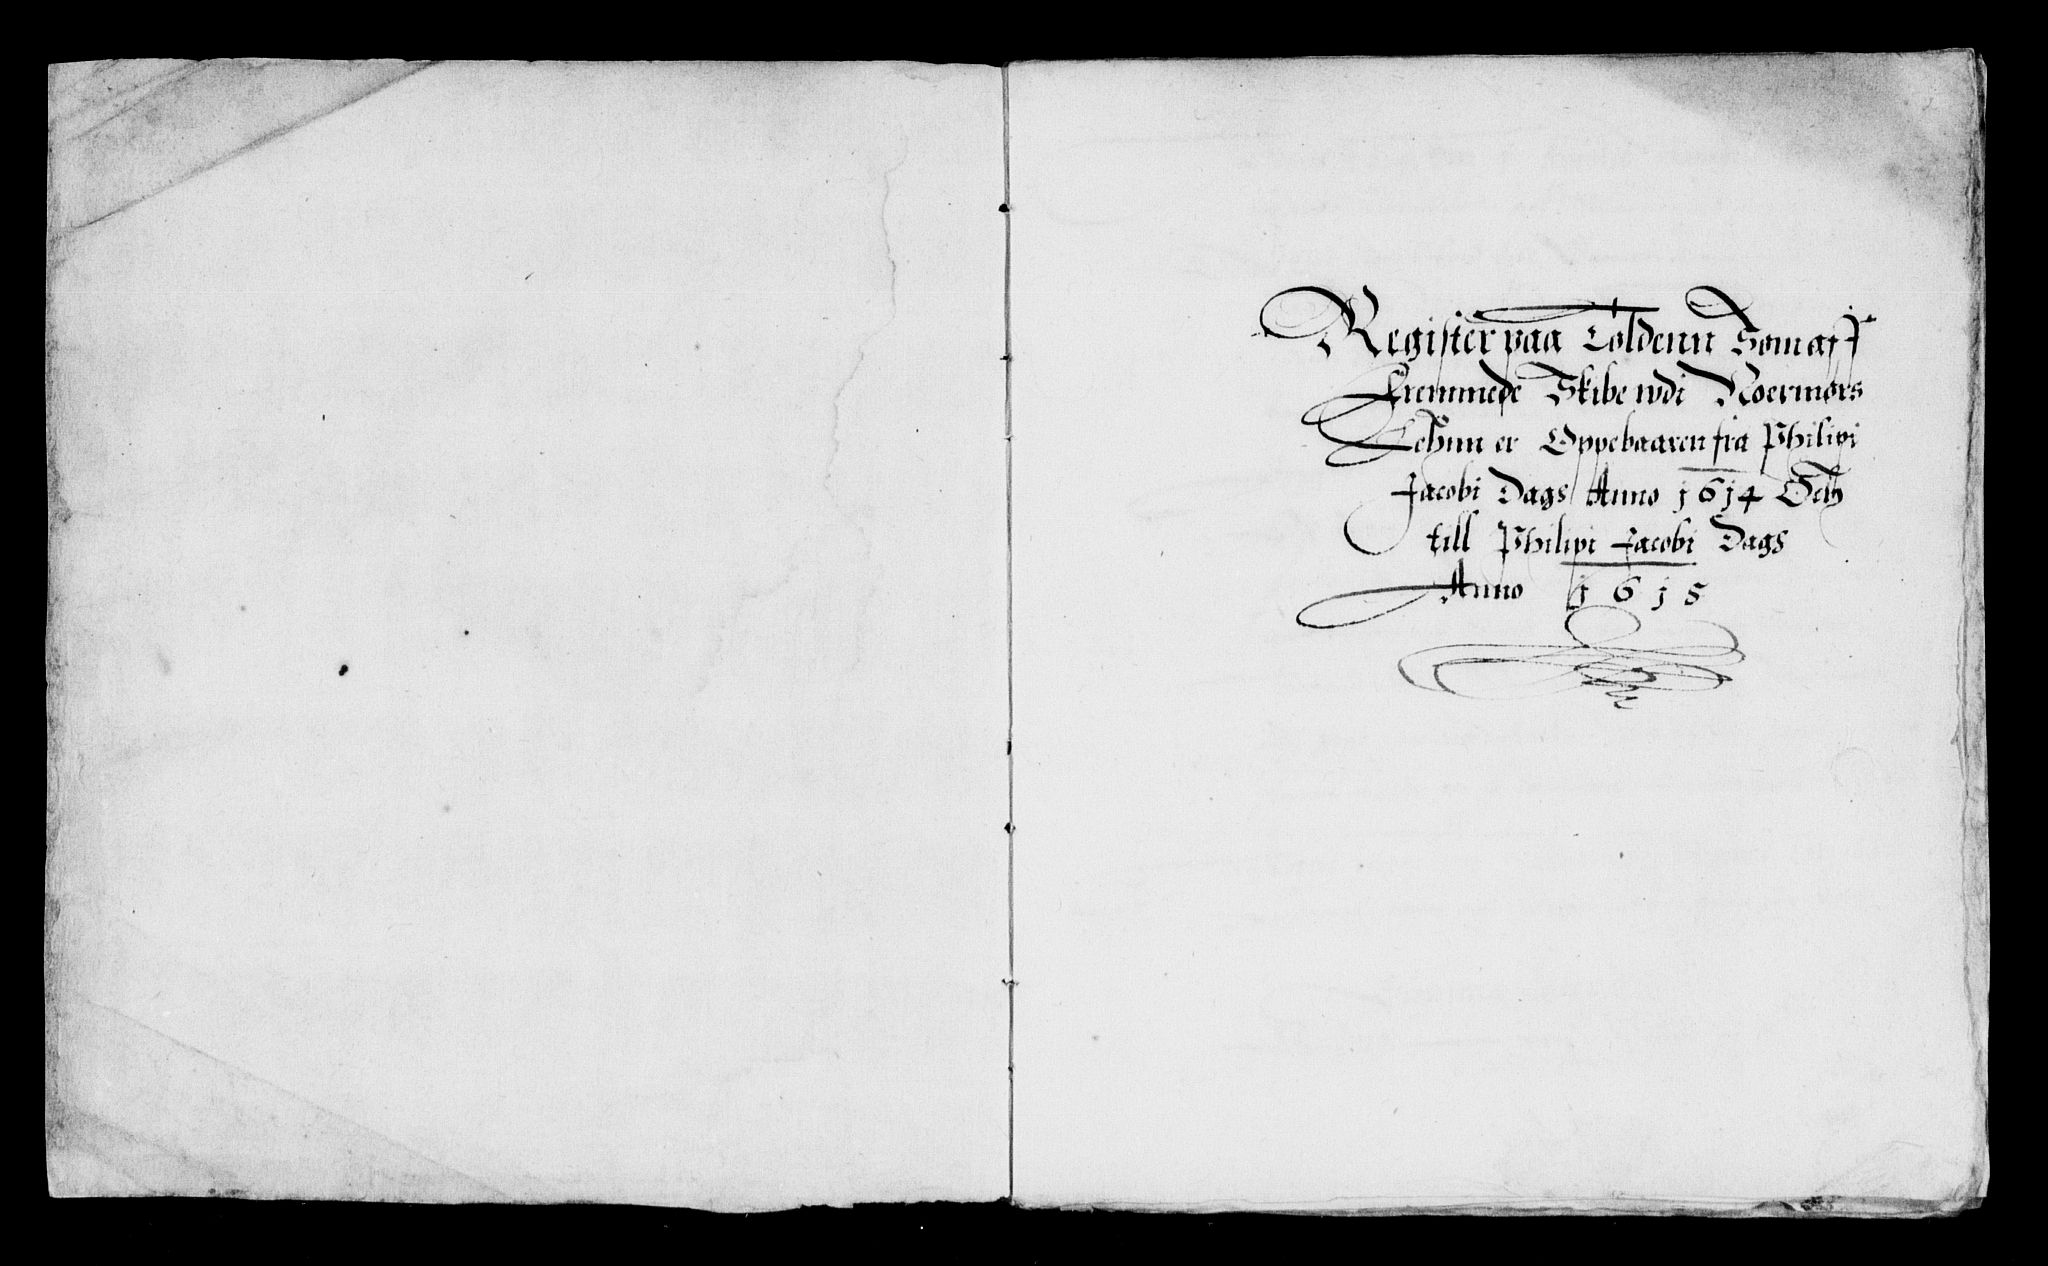 Register paa Toldenn Som aff
Fremmede Skibe wdi Noermørs
Lehnn er Oppebaaren fra Philipi
Jacobi Dags Anno 1614 Och
till Philipi Jacobi Dags
Anno 1615